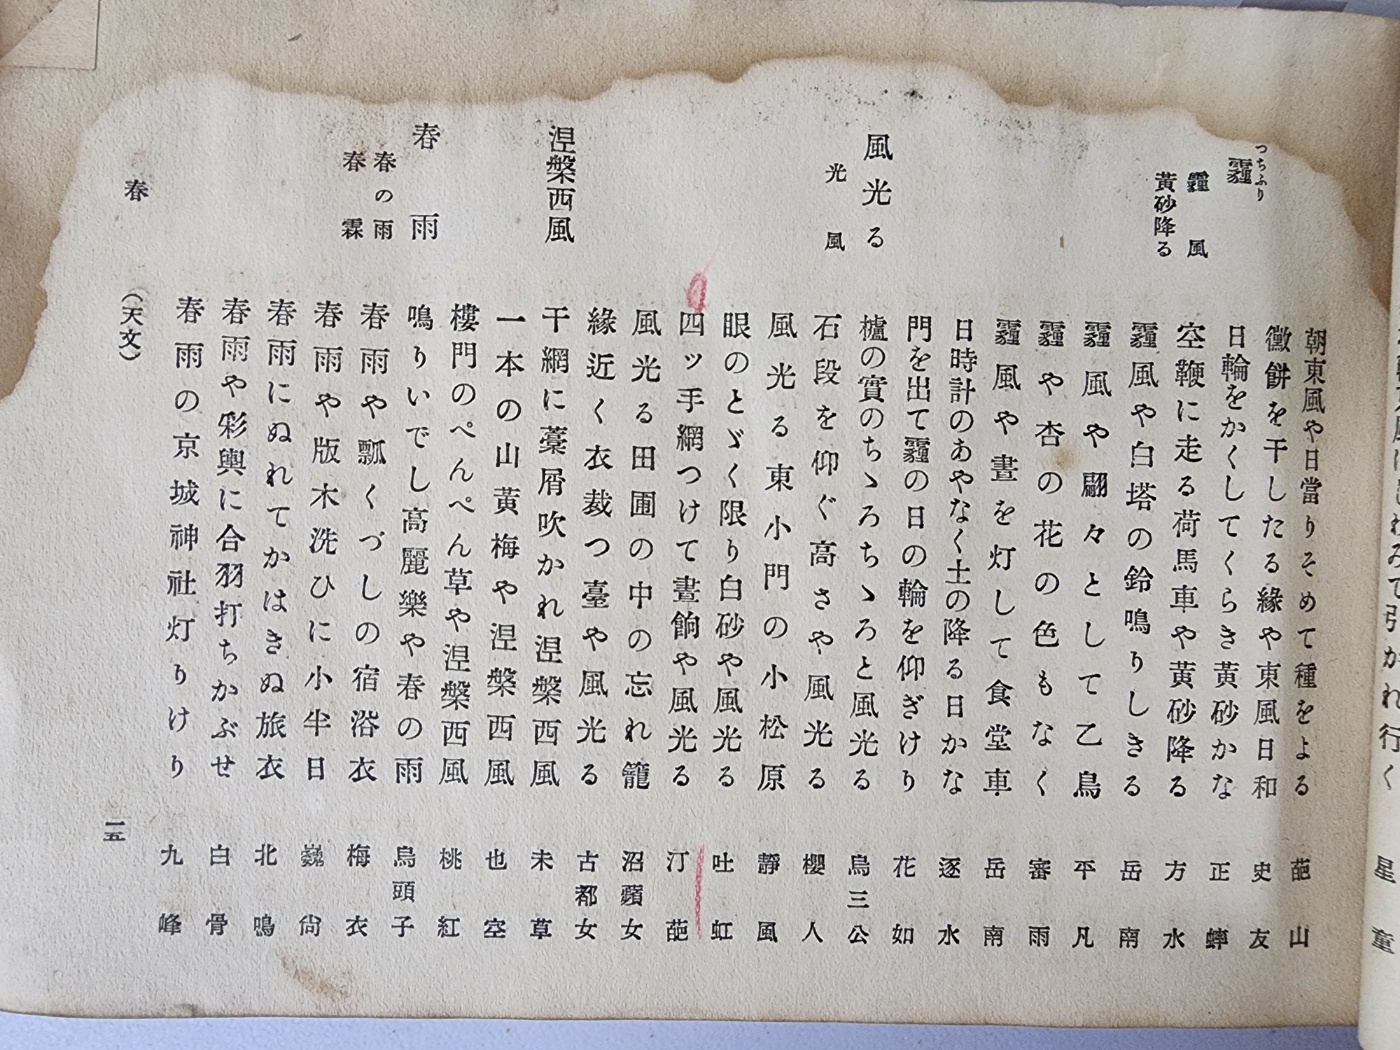 朝東風や日當りそめて種をよる　葩山
黴餠を干したる緣や東風日和　史友
霾
つちふり
日輪をかくしてくらき黃砂かな　正蟀
霾風
黃砂降る
空鞭に走る荷馬車や黃砂降る　方水
霾風や白塔の鈴鳴りしきる　岳南
霾風や翩々として乙鳥　平凡
霾や杏の花の色もなく　審雨
霾風や晝を灯して食堂車　岳南
日時計のあやなく土の降る日かな　逐水
門を出て霾の日の輪を仰ぎけり　花如
風光る
光風
櫨の實のちゝろちゝろと風光る　鳥三公
石段を仰ぐ高さや風光る　櫻人
風光る東小門の小松原　靜風
眼のとゞく限り白砂や風光る　吐虹
四ッ手網つけて晝餉や風光る　汀葩
風光る田圃の中の忘れ籠　沼蘋女
緣近く衣裁つ臺や風光る　古都女
涅槃西風
干網に藁屑吹かれ涅槃西風　未草
一本の山黃梅や涅槃西風　也空
樓門のぺんぺん草や涅槃西風　桃紅
春雨
春の雨
春霖
鳴りいでし高麗樂や春の雨　烏頭子
春雨や瓢くづしの宿浴衣　梅衣
春雨や版木洗ひに小半日　巍尙
春雨にぬれてかはきぬ旅衣　北鳴
春雨や彩輿に合羽打ちかぶせ　白骨
春雨の京城神社灯りけり　九峰
春
（天文）
一五
れ行く　星童